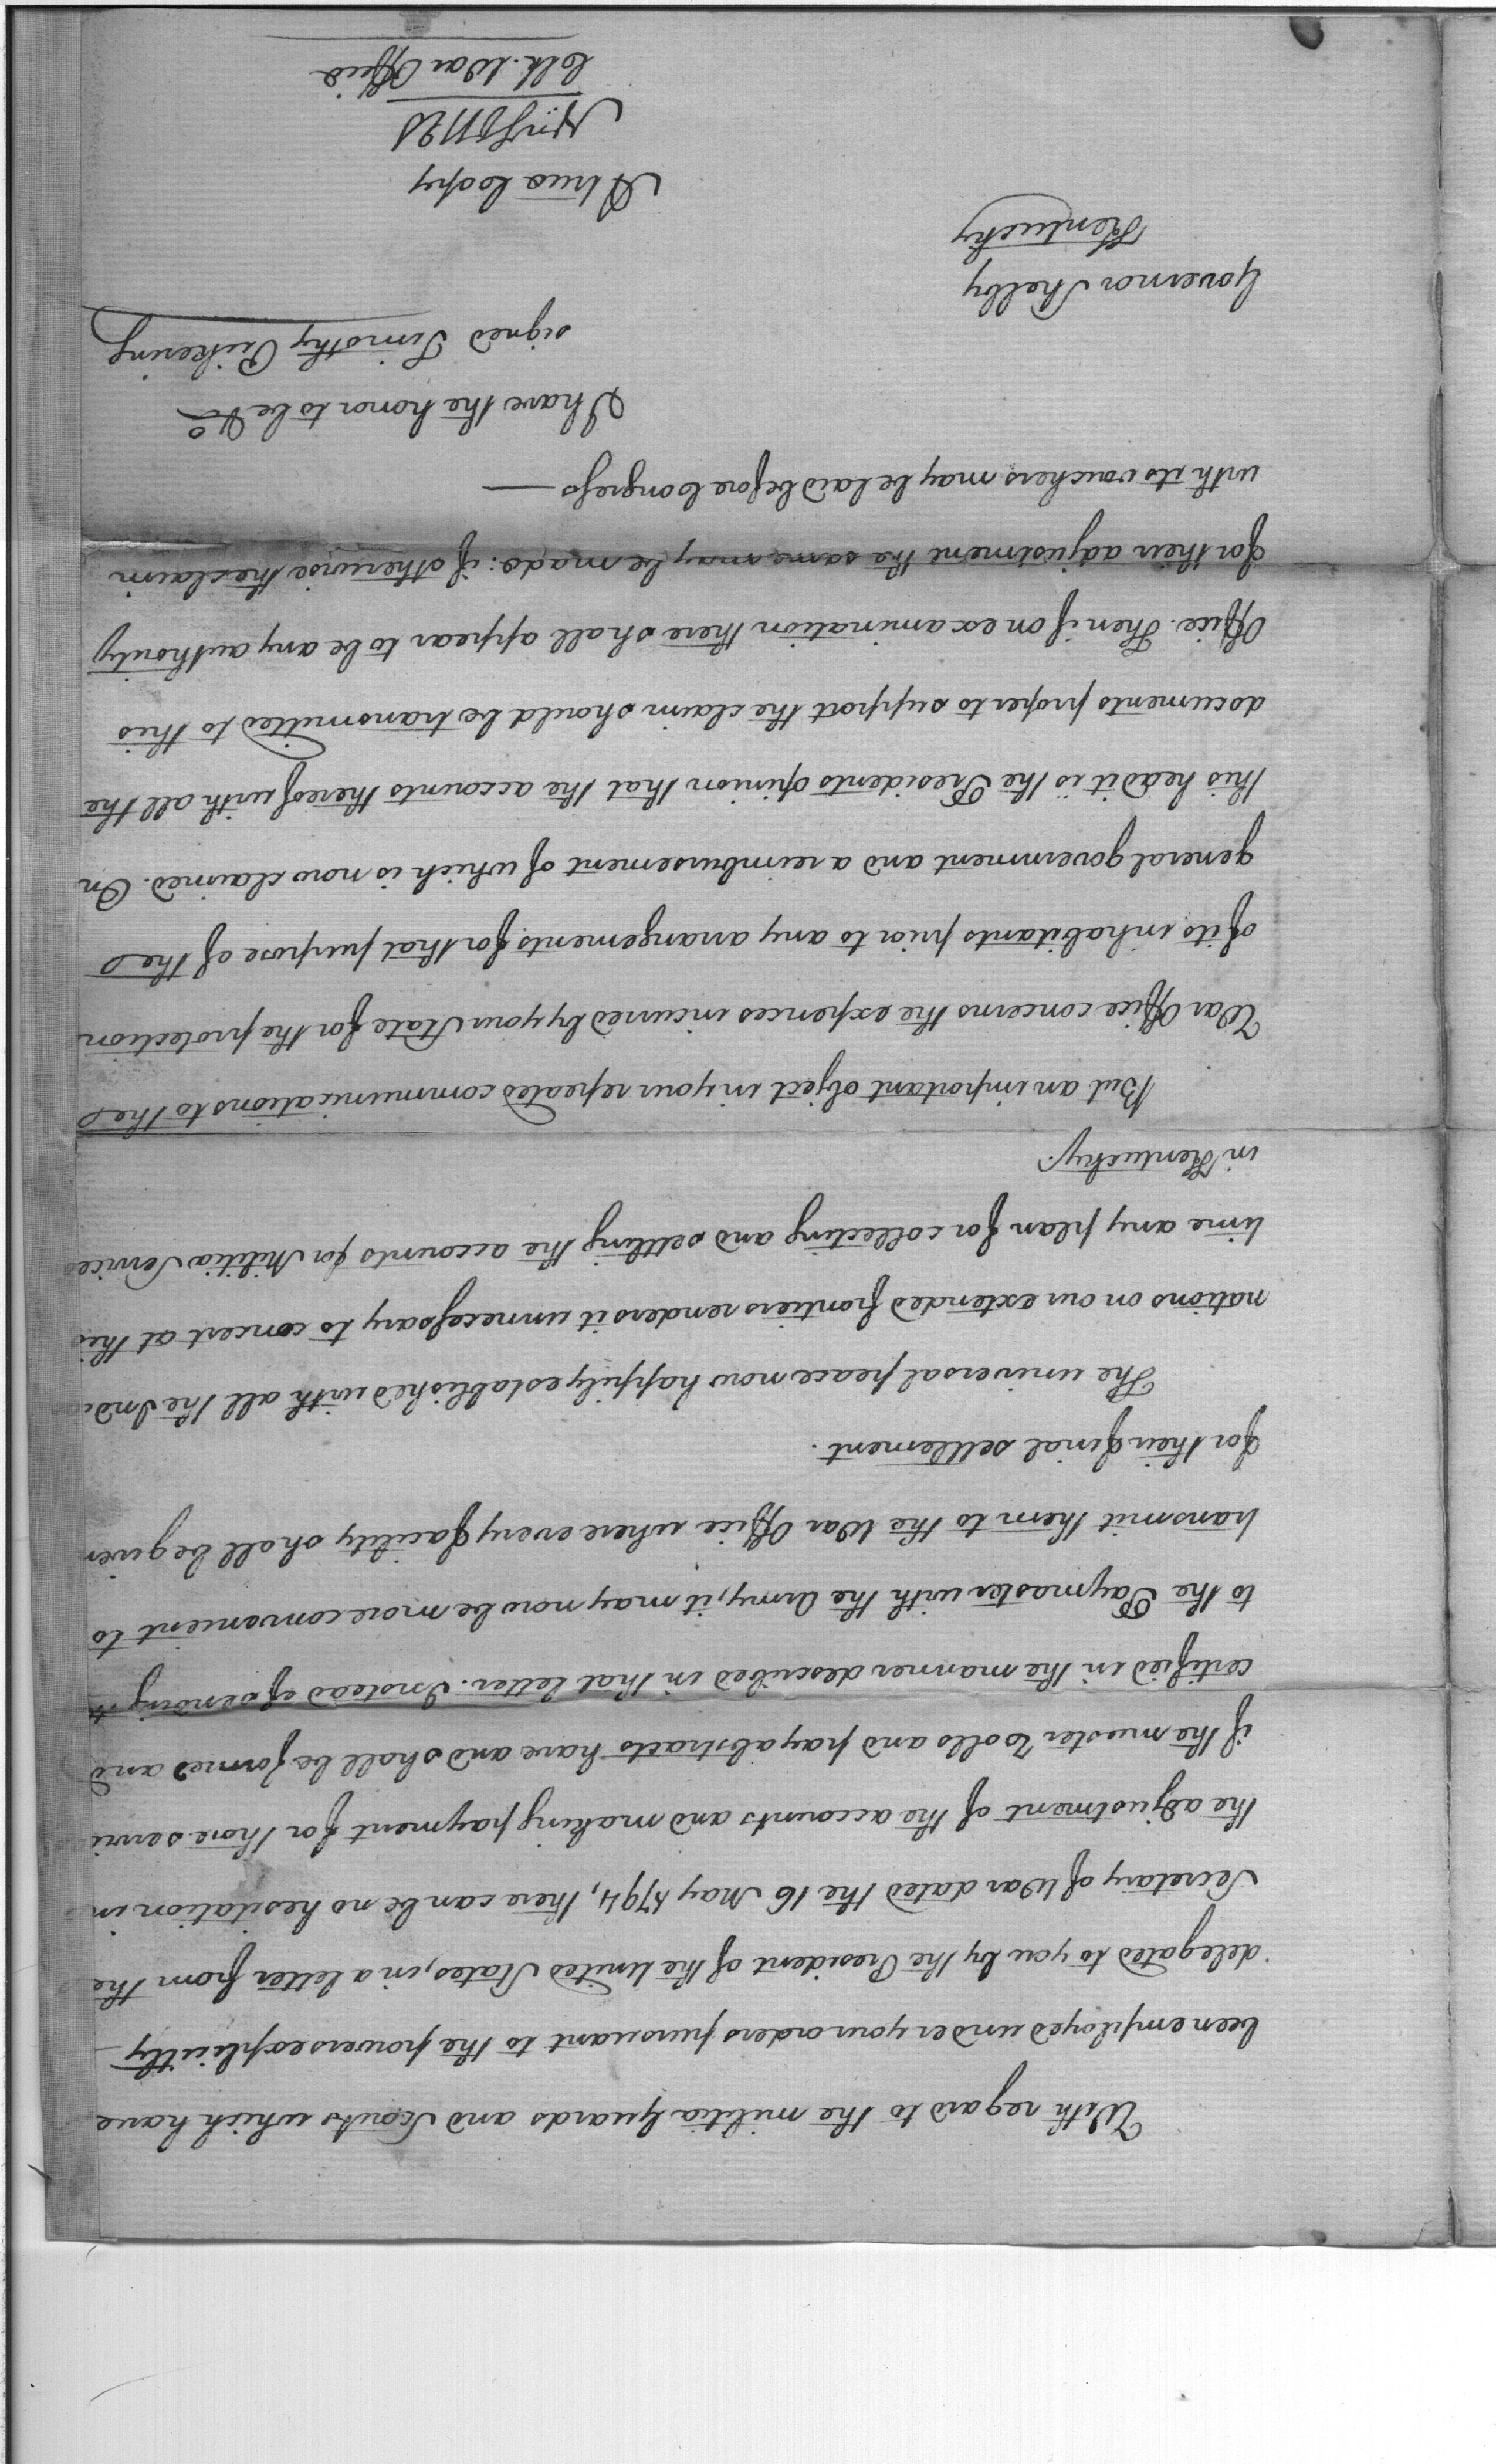 With regard to the militia Guards and Scouts which have
been employed under your orders pursuant to the powers explicitly
delegated to you by the President of the United States, in a letter from the
Secretary of War dated the 16 May 1794, there can be no hesitation in
the adjustment of the accounts and making payment for those
if the muster Rolls and pay abstracts have and shall be formed and
certified in the manner described in that letter. Instead of sending
to the Paymaster with the Army, it may now be more convenient to
transmit them to the War Office where every facility shall be given
for their final settlement.
The universal peace now happily established with all the
nations on our extended frontiers renders it unnecessary to concert at this
time any plan for collecting and settling the accounts for Militia Services
in Kentucky.
But an important object in your repeated communications to the
War Office concerns the expences incurred by your State for the protection
of its inhabitants prior to any arrangements for that purpose of the
general government and a reimbursement of which is now claimed. On
this head it is the Presidents opinion that the accounts thereof with all the
documents proper to support the claim should be transmitted to this
Office. Then if on examination there shall appear to be any authority
for their adjustment the same may be made: if otherwise the claim
with its vouchers may be laid before Congress —
I have the honor to be &c
signed Timothy Pickering
Governor Shelby
Kentucky
A true Copy
Clk. War Office